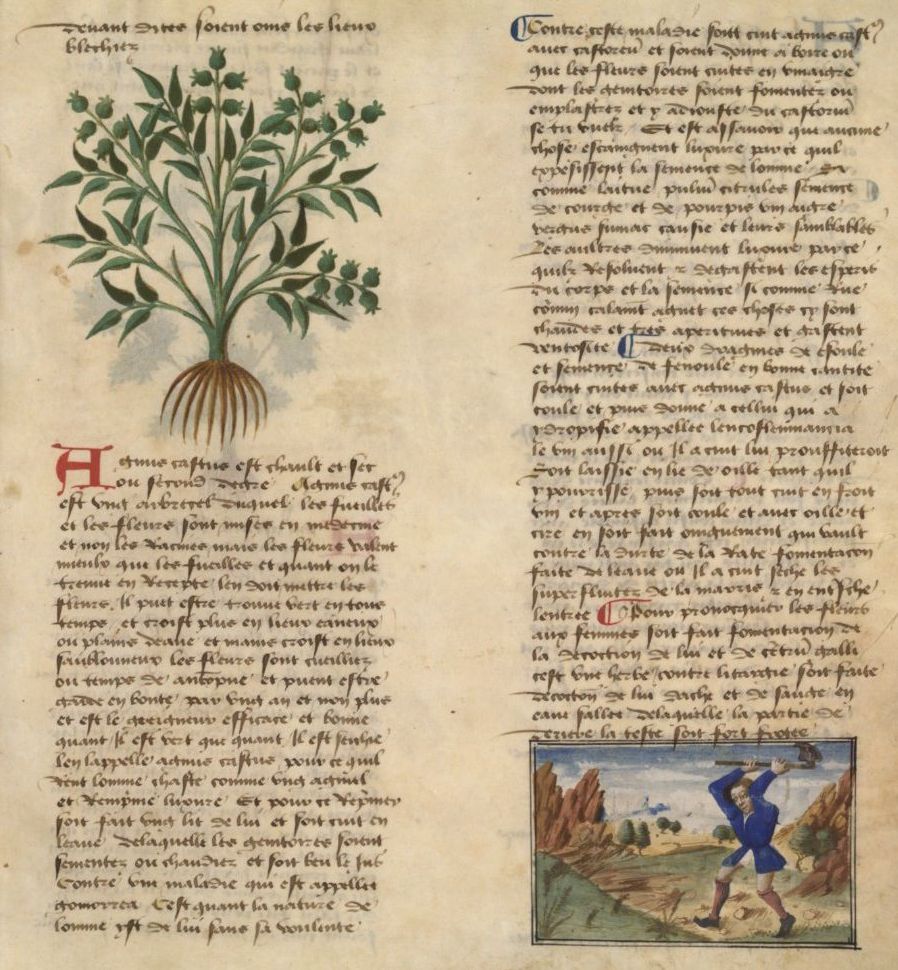 devant dites soient oins les lieux
blechiez
Agnus castus est chault et sec
ou second degre Agnus cast9
est ung arbrecel duquel les fueilles
et les fleurs sont mises en medecine
et non les Racines mais les fleurs valent
mieulx que les fueilles et quant on le
treuue en Recepte len doit mettre les
fleurs. Il puet estre trouue vert en tous
temps et croist plus en lieux eaueux
ou plains deaue et mains croist en lieux
sablonneux les fleurs sont cueillies
ou temps de autopne et puent estre
gardees en bonte par ung an et non plus
et est le greigneur efficace et bonne
quant Il est vert que quant Il est seichie
len lappelle agnus castus pource quil
rent lomme chaste comme ung agniel
et Reprime luxure Et pour ce Reprimer
soit fait ung lit de lui et soit cuit en
leaue delaquelle les genitoires soient
fomentez ou chaudiez et soit beu le Jus
Contre une maladie qui est appellee
gomorrea Cest quant la nature de
lomme yst de lui sans sa voulente
Contre ceste maladie soit cuit agnus cast9
auec castoreu et soient donne a boire ou
que les fleurs soient cuites en vinaigre
dont les genitoires soient fomentez ou
emplastrez et y adiouste du castoriu
se tu veulx Et est assauoir que aucune
chose escaingnent luxure parce quil
espessissent la semence de lomme Et
comme laitue citrules semence
de courge et de pourpie vin aigre
vergus sumac canfre et leurs samblables
Les aultres diminuent luxure parce
quilz Resoluent et degastent les esperis
du corps et la semence si comme Rue
comin calament agnet ces choses cy sont
chaudes et tres aperitiues et gastent
ventosite Deux dragmes de esoule
et semence de fenoule en bonne cantite
soient cuites auec agnus castus et soit
coule et puis donne a cellui qui a
ydropisie appellee leucofleumancia
le vin aussi ou Il a cuit lui prouffiteroit
Soit laissie en lie de oille tant quil
ypourrisse puis soit tout cuit en fort
vin et apres soit coule et auec oille et
cire en soit fait oingnement qui vault
contre la durte de la Rate fomentacion
faite de leaue ou Il a cuit seche les
superfluitez de la marris et en
lentree Pour prouocquier les fleurs
aux femmes soit fait fomentacion de
la decoction de lui et de cetru galli
cest une herbe contre litargie soit faite
decoction de lui dache et de sauge en
eaue sallee delaquelle la partie de
derriere la teste soit fort frotee